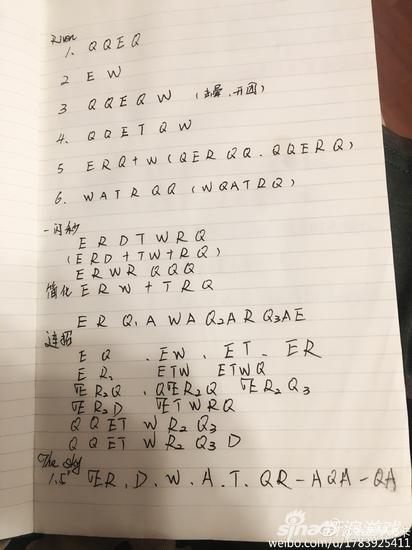 Riven
1. Q Q E Q
2 E W
3 Q Q E Q W (击晕.开团)
4. Q Q E T Q W
5 E R Q + W (Q E R Q Q . Q Q E R Q)
6. W A T R Q Q (W Q A T R Q)
一闪秒
E R D T W R Q
(E R D + T W + R Q)
E R W R Q Q Q
简化 E R W + T R Q
E R Q1 A W A Q2 A R Q3 A E
连招
E Q . E W . E T . E R
E R2 E T W E T W Q
E R2 Q . Q E R2 Q E R2 Q3
E R2 D E T W R Q
Q Q E T W R2 Q3
Q Q E T W R2 Q3 D
The shy
1.5" E R . D . W . A . T . Q R - A Q A - Q A
sina 新浪游戏
weibo.com/u/1783925411